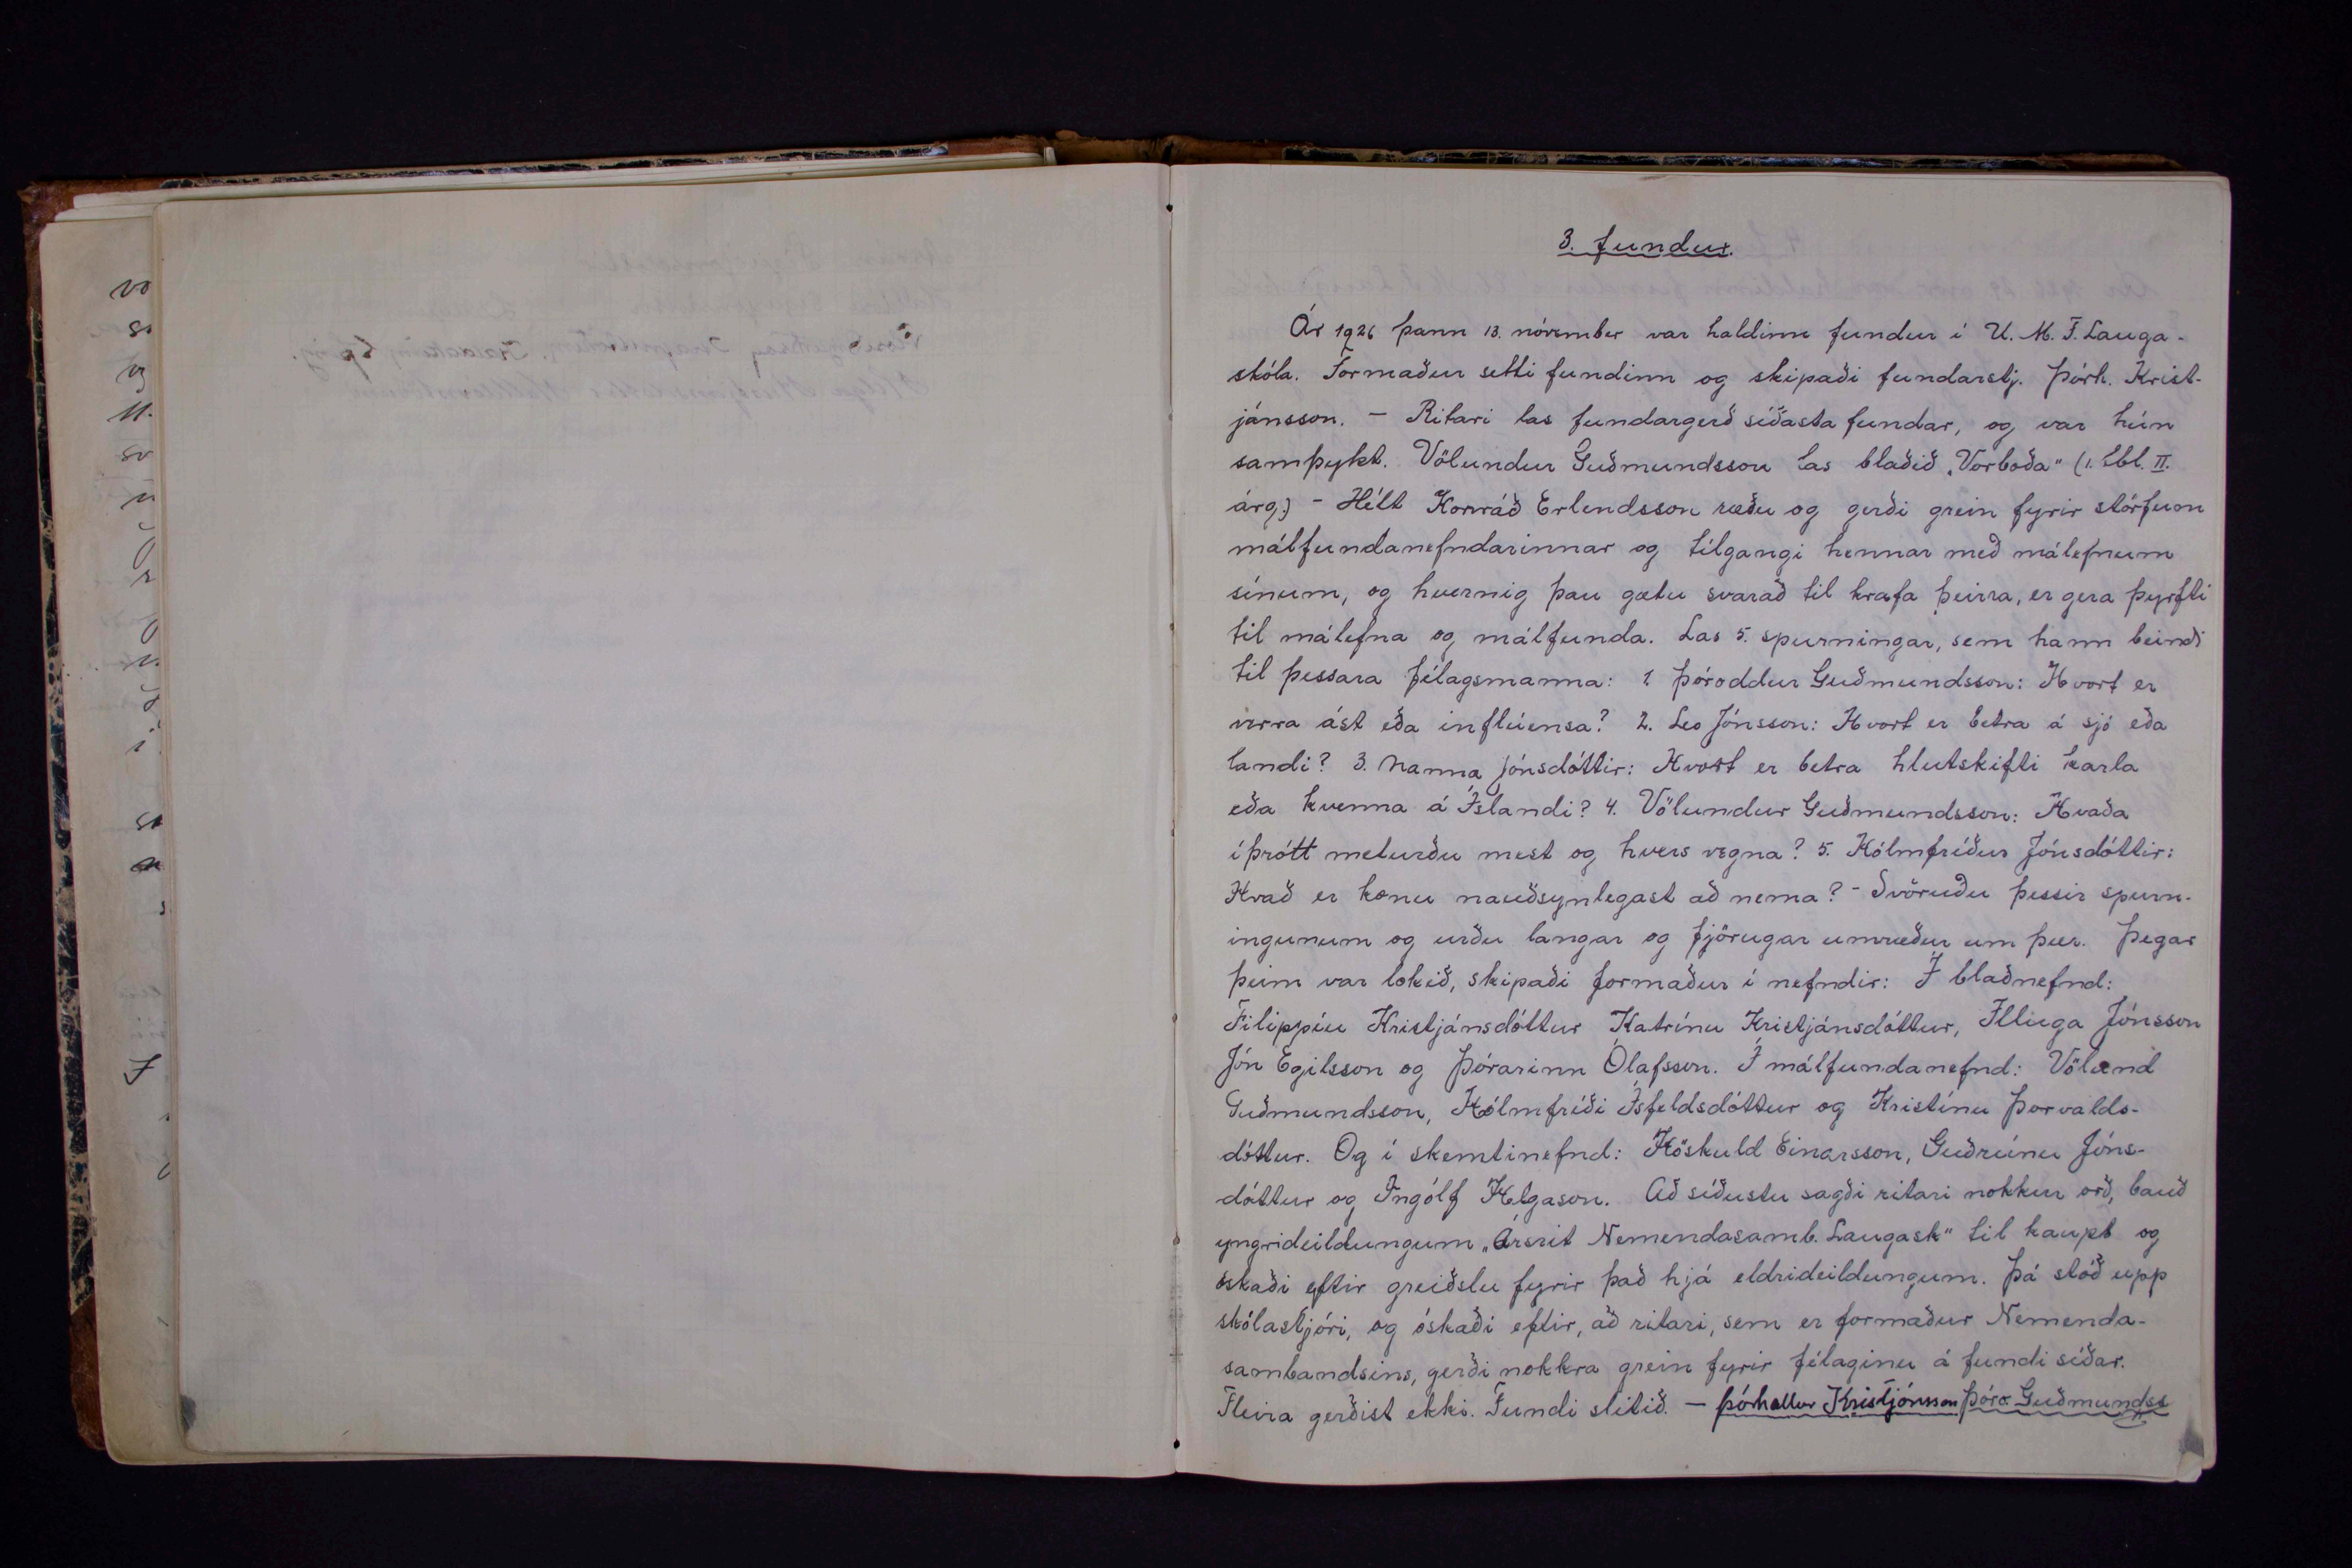 3. fundur.
Ár 1926 þann 13. nóvember var haldinn fundur í U. M. F. Lauga-
skóla. Formaður setti fundinn og skipaði fundarstj. Þórh. Krist-
jánsson. - Ritari las fundargerð síðasta fundar, og var hún
samþykt. Völundur Guðmundsson las blaðið „Vorboða" (1. tbl. II.
árg.) - Hélt Konráð Erlendsson ræðu og gerði grein fyrir störfum
málfundanefndarinnar og tilgangi hennar með málefnum
sínum, og hvernig þau gætu svarað til krafa þeirra, er gera þyrfti
til málefna og málfunda. Las 5. spurningar, sem hann beindi
til þessara félagsmanna: 1. Þóroddur Guðmundsson: Hvort er
verra ást eða inflúensa? 2. Leo Jónsson: Hvort er betra á sjó eða
landi? 3. Nanna Jónsdóttir: Hvort er betra hlutskifti karla
eða kvenna á Íslandi? 4. Völundur Guðmundsson: Hvaða
íþrótt meturðu mest og hvers vegna? 5. Hólmfríður Jónsdóttir:
Hvað er konu nauðsynlegast að nema? - Svöruðu þessir spurn-
ingunum og urðu langar og fjörugar umræður um þær. Þegar
þeim var lokið, skipaði formaður í nefndir: Í blaðnefnd:
Filippíu Kristjánsdóttur Katrínu Kristjánsdóttur, Illuga Jónsson
Jón Egilsson og Þórarinn Ólafsson. Í málfundanefnd: Völund
Guðmundsson, Hólmfríði Ísfeldsdóttur og Kristínu Þorvalds-
dóttur. Og í skemtinefnd: Höskuld Einarsson, Guðrúnu Jóns-
dóttur og Ingólf Helgason. Að síðustu sagði ritari nokkur orð, bauð
yngrideildungum „Ársrit Nemendasamb. Laugask" til kaups og
óskaði eftir greiðslu fyrir það hjá eldrideildungum. Þá stóð upp
skólastjóri, og óskaði eftir, að ritari, sem er formaður Nemenda-
sambandsins, gerði nokkra grein fyrir félaginu á fundi síðar.
Fleira gerðist ekki. Fundi slitið. - Þórhallur Kristjánsson Þór. Guðmundss